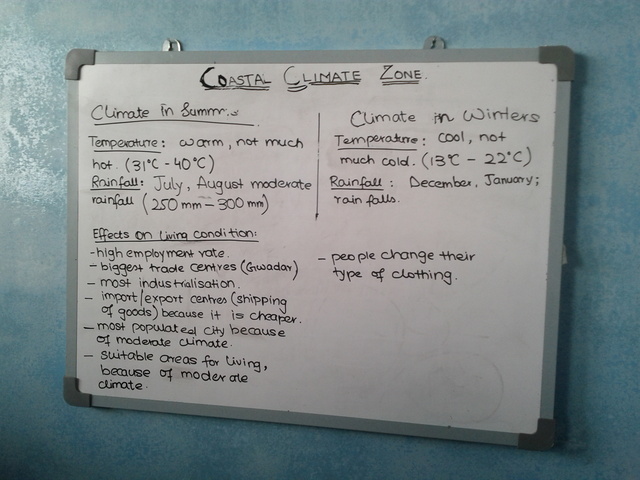 COASTAL CLIMATE ZONE.
Climate in Summr..s
Temperature: warm, not much
hot. (31°C - 40°C)
Rainfall: July, August moderate
rainfall (250 mm - 300 mm)
Climate in Winters
Temperature: cool, not
much cold. (13°C - 22°C)
Rainfall: December, January;
rain falls.
Effects on living condition:
- high employment rate.
- biggest trade centres (Gwadar)
- most industrialisation.
- import/export centres (shipping
of goods) because it is cheaper.
- most populated city because
of moderate climate.
- suitable areas for living,
because of moderate
climate.
- people change their
type of clothing.